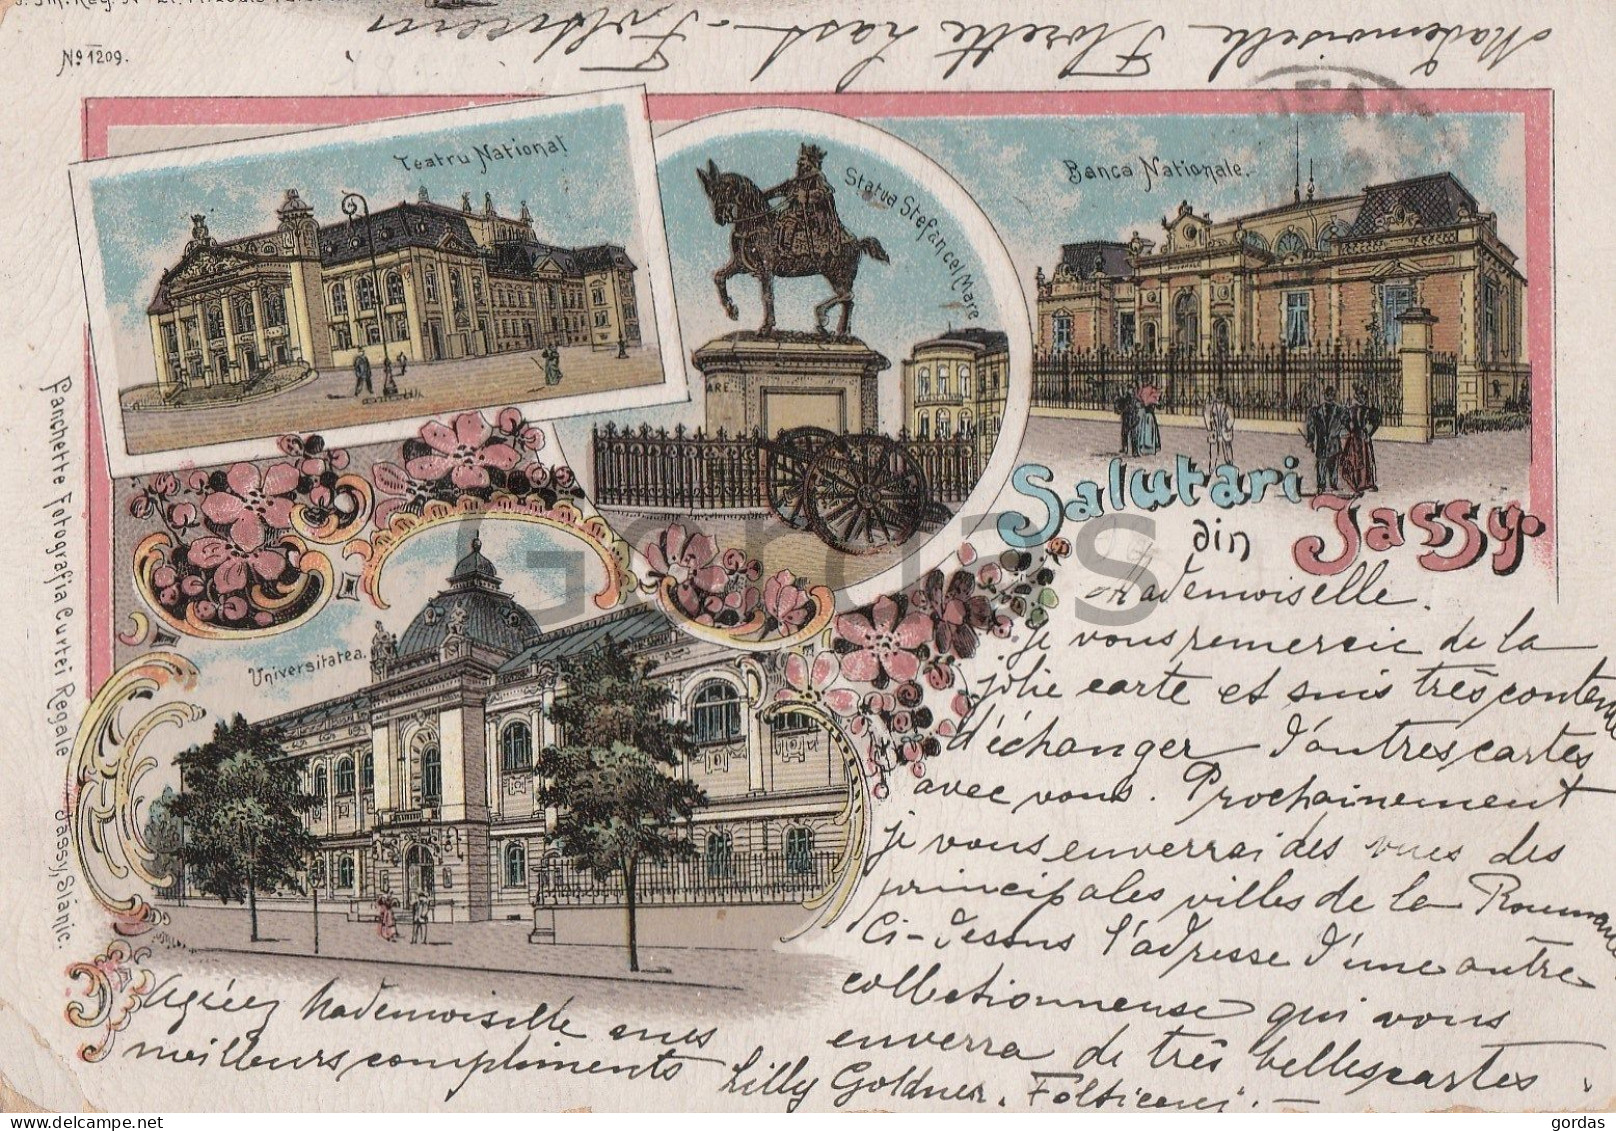 No 1209.
Mademoiselle Florette Last - Folticeni
Teatru National
Statua Stefan cel Mare
Banca Nationale.
Universitatea.
Salutari
din Jassy.
Fanchette Fotografia Curtei Regale Jassy, Slanic.
Gordas
Mademoiselle.
Je vous remercie de la
jolie carte et suis très contente
d'échanger d'autres cartes
avec vous. Prochainement
je vous enverrai des vues des
principales villes de la Roumanie
Ci-dessous l'adresse d'une autre
collectionneuse qui vous
enverra de très belles cartes.
Agréez Mademoiselle mes
meilleurs compliments
Lilly Goldner. Folticeni. -
gordas
delcampe.net